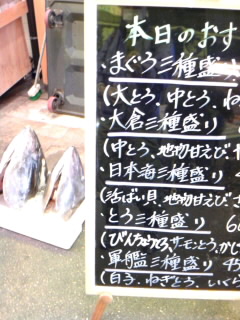 本日のおす
・まぐろ三種盛り
(大とろ、中とろ、ね
・大倉三種盛り
(中とろ、地物甘えび、や
・日本海三種盛り
(活ばい貝、地物甘えび、さ
・とろ三種盛り 6
(びんちょうとろ、サーモンとろ、かじ
・軍艦三種盛り 45
(白子、ねぎとろ、いくら